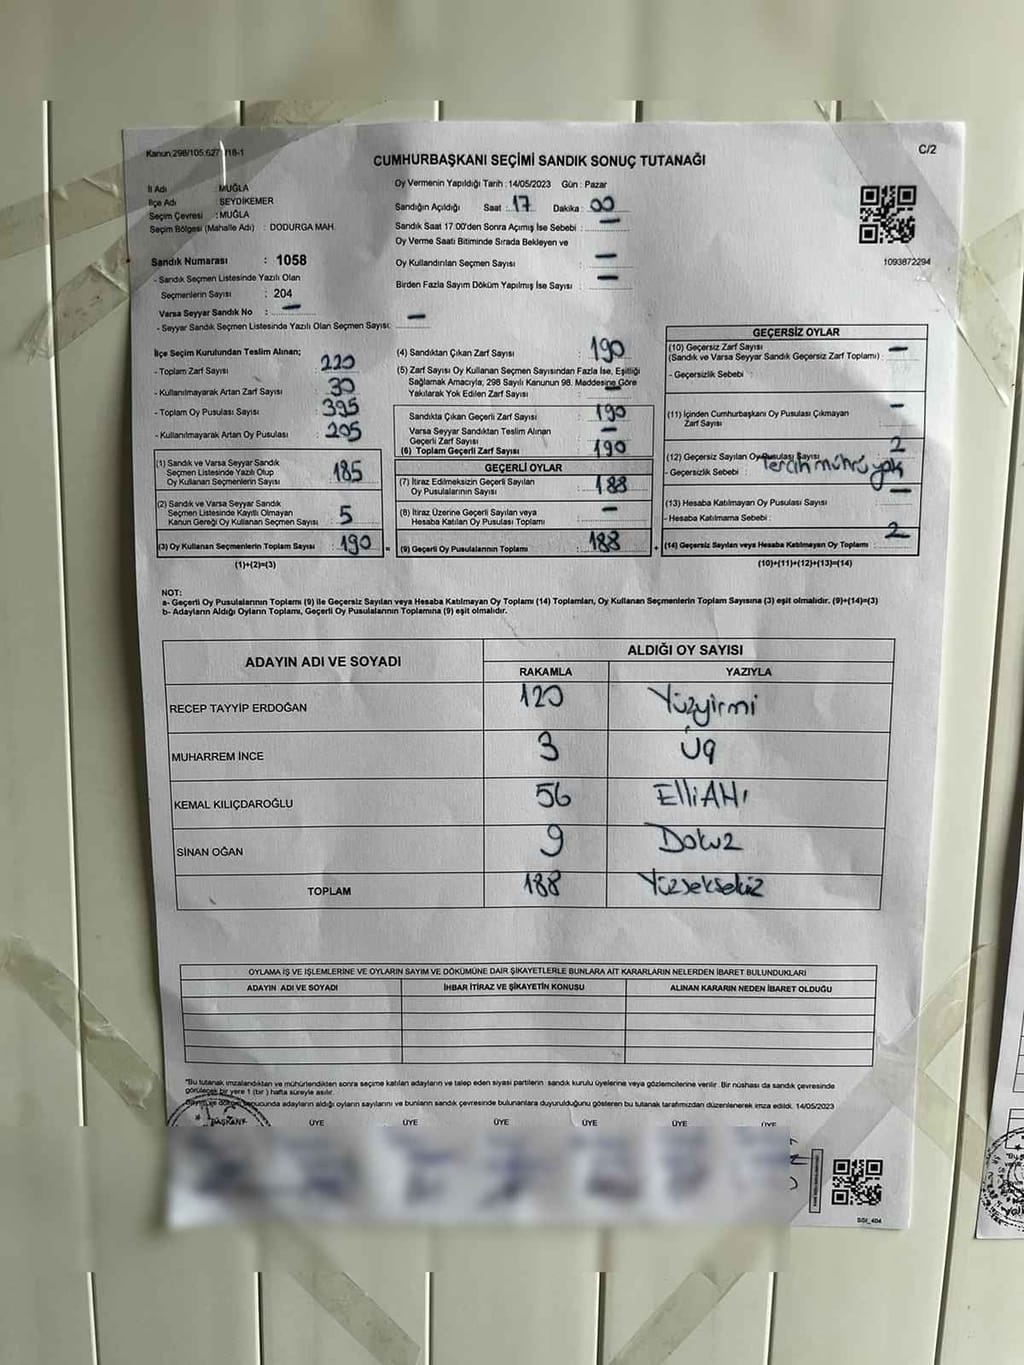 Kanun:298/105;627 /18-1
CUMHURBAŞKANI SEÇİMİ SANDIK SONUÇ TUTANAĞI
C/2
İl Adı : MUĞLA
İlçe Adı : SEYDİKEMER
Seçim Çevresi : MUĞLA
Seçim Bölgesi (Mahalle Adı) : DODURGA MAH.
Oy Vermenin Yapıldığı Tarih : 14/05/2023 Gün : Pazar
Sandığın Açıldığı Saat : 17 Dakika : 00
Sandık Saat 17.00'den Sonra Açımış İse Sebebi : —
Oy Verme Saati Bitiminde Sırada Bekleyen ve
Oy Kullandırılan Seçmen Sayısı : —
Birden Fazla Sayım Döküm Yapılmış İse Sayısı : —
1093872294
Sandık Numarası : 1058
- Sandık Seçmen Listesinde Yazılı Olan
Seçmenlerin Sayısı : 204
Varsa Seyyar Sandık No : —
- Seyyar Sandık Seçmen Listesinde Yazılı Olan Seçmen Sayısı: —
İlçe Seçim Kurulundan Teslim Alınan;
- Toplam Zarf Sayısı : 220
- Kullanılmayarak Artan Zarf Sayısı : 30
- Toplam Oy Pusulası Sayısı : 395
- Kullanılmayarak Artan Oy Pusulası : 205
(1) Sandık ve Varsa Seyyar Sandık
Seçmen Listesinde Yazılı Olup
Oy Kullanan Seçmenlerin Sayısı : 185
(2) Sandık ve Varsa Seyyar Sandık
Seçmen Listesinde Kayıtlı Olmayan
Kanun Gereği Oy Kullanan Seçmen Sayısı : 5
(3) Oy Kullanan Seçmenlerin Toplam Sayısı : 190 =
(1)+(2)=(3)
(4) Sandıktan Çıkan Zarf Sayısı : 190
(5) Zarf Sayısı Oy Kullanan Seçmen Sayısından Fazla İse, Eşitliği
Sağlamak Amacıyla, 298 Sayılı Kanunun 98. Maddesine Göre
Yakılarak Yok Edilen Zarf Sayısı : —
Sandıkta Çıkan Geçerli Zarf Sayısı : 190
Varsa Seyyar Sandıktan Teslim Alınan
Geçerli Zarf Sayısı : —
(6) Toplam Geçerli Zarf Sayısı : 190
GEÇERLİ OYLAR
(7) İtiraz Edilmeksizin Geçerli Sayılan
Oy Pusulalarının Sayısı : 188
(8) İtiraz Üzerine Geçerli Sayılan veya
Hesaba Katılan Oy Pusulası Toplamı : —
(9) Geçerli Oy Pusulalarının Toplamı : 188 +
GEÇERSİZ OYLAR
(10) Geçersiz Zarf Sayısı
(Sandık ve Varsa Seyyar Sandık Geçersiz Zarf Toplamı) : —
- Geçersizlik Sebebi :
(11) İçinden Cumhurbaşkanı Oy Pusulası Çıkmayan
Zarf Sayısı : —
(12) Geçersiz Sayılan Oy Pusulası Sayısı : 2
- Geçersizlik Sebebi : Tercih mührü yok
(13) Hesaba Katılmayan Oy Pusulası Sayısı : —
- Hesaba Katılmama Sebebi :
(14) Geçersiz Sayılan veya Hesaba Katılmayan Oy Toplamı : 2
(10)+(11)+(12)+(13)=(14)
NOT:
a- Geçerli Oy Pusulalarının Toplamı (9) ile Geçersiz Sayılan veya Hesaba Katılmayan Oy Toplamı (14) Toplamları, Oy Kullanan Seçmenlerin Toplam Sayısına (3) eşit olmalıdır. (9)+(14)=(3)
b- Adayların Aldığı Oyların Toplamı, Geçerli Oy Pusulalarının Toplamına (9) eşit olmalıdır.
ADAYIN ADI VE SOYADI ALDIĞI OY SAYISI
RAKAMLA YAZIYLA
RECEP TAYYİP ERDOĞAN 120 Yüzyirmi
MUHARREM İNCE 3 Üç
KEMAL KILIÇDAROĞLU 56 ElliAltı
SİNAN OĞAN 9 Dokuz
TOPLAM 188 Yüzseksekiz
OYLAMA İŞ VE İŞLEMLERİNE VE OYLARIN SAYIM VE DÖKÜMÜNE DAİR ŞİKAYETLERLE BUNLARA AİT KARARLARIN NELERDEN İBARET BULUNDUKLARI
ADAYIN ADI VE SOYADI İHBAR İTİRAZ VE ŞİKAYETİN KONUSU ALINAN KARARIN NEDEN İBARET OLDUĞU
*Bu tutanak imzalandıktan ve mühürlendikten sonra seçime katılan adayların ve talep eden siyasi partilerin sandık kurulu üyelerine veya gözlemcilerine verilir. Bir nüshası da sandık çevresinde
görülecek bir yere 1 (bir) hafta süreyle asılır.
döküm sonucunda adayların aldığı oyların sayılarını ve bunların sandık çevresinde bulunanlara duyurulduğunu gösteren bu tutanak tarafımızdan düzenlenerek imza edildi. 14/05/2023
BAŞKAN ÜYE ÜYE ÜYE ÜYE ÜYE ÜYE
SSI_404